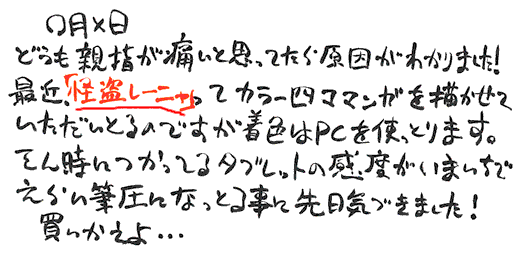 〇月×日
どうも親指が痛いと思ってたら原因がわかりました!
最近、「怪盗レーニャ」ってカラー四コママンガを描かせて
いただいとるのですが着色はPCを使っとります。
そん時につかってるタブレットの感度がいまいちで
えらい筆圧になっとる事に先日気づきました!
買いかえよ…